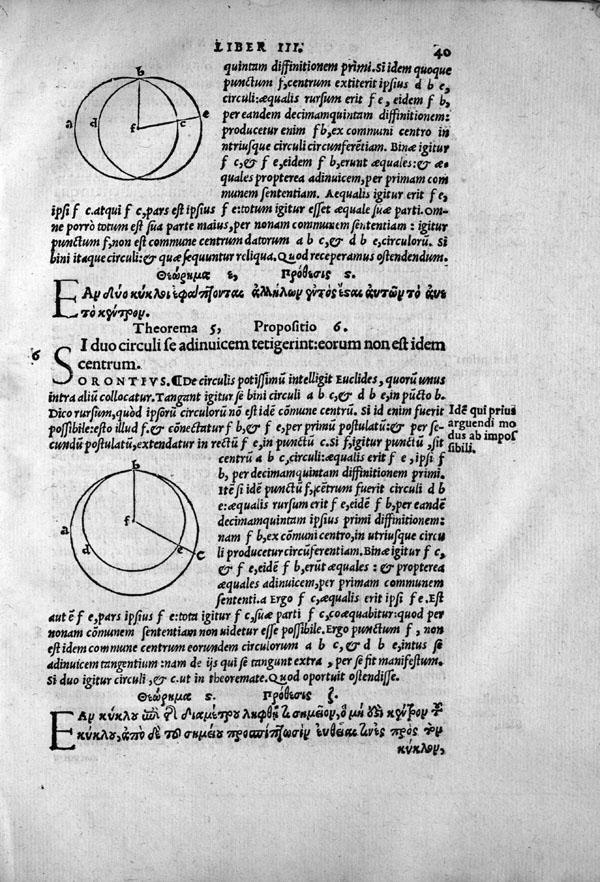 LIBER III.
40
quintam diffinitionem primi. Si idem quoque
punctum f, centrum extiterit ipsius d b e,
circuli: æqualis rursum erit f e, eidem f b,
per eandem decimamquintam diffinitionem:
producetur enim f b, ex communi centro in
utriusque circuli circunferẽtiam. Binæ igitur
f c, & f e, eidem f b, erunt æquales: & æ-
quales propterea adinuicem, per primam com
munem sententiam. Aequalis igitur erit f e,
ipsi f c. atqui f c, pars est ipsius f e: totum igitur esset æquale suæ parti. Om-
ne porrò totum est sua parte maius, per nonam communem sententiam: igitur
punctum f, non est commune centrum datorum a b c, & d b e, circulorũ. Si
bini itaque circuli: & quæ sequuntur reliqua. Quod receperamus ostendendum.
Θεώρημα ε, Πρόθεσις ς.
ΕΑν δύο κύκλοι ἐφάπτωνται ἀλλήλων
Theorema 5, Propositio 6.
6
SI duo circuli se adinuicem tetigerint: eorum non est idem
centrum.
ORONTIVS. ¶De circulis potissimũ intelligit Euclides, quorũ unus
intra aliũ collocatur. Tangant igitur se bini circuli a b c, & d b e, in pũcto b.
Dico rursum, quòd ipsorũ circulorũ nõ est idẽ cõmune centrũ. Si id enim fuerit
possibile: esto illud f. & cõnectatur f b, & f e, per primũ postulatũ: & per se-
cundũ postulatũ, extendatur in rectũ f e, in punctũ c. Si f, igitur punctũ, sit
Idẽ qui prius
arguendi mo
dus ab impos
sibili.
centrũ a b c, circuli: æqualis erit f c, ipsi f
b, per decimamquintam diffinitionem primi.
Itẽ si idẽ punctũ f, cẽtrum fuerit circuli d b
e: æqualis rursum erit f e, eidẽ f b, per eandẽ
decimamquintam ipsius primi diffinitionem:
nam f b, ex cõmuni centro, in utriusque circu
li producetur circũferentiam. Binæ igitur f c,
& f e, eidẽ f b, erũt æquales: & propterea
æquales adinuicem, per primam communem
sententiã. Ergo f c, æqualis erit ipsi f e. Est
aut ẽ f e, pars ipsius f c: tota igitur f c, suæ parti f e, coæquabitur: quod per
nonam cõmunem sententiam non uidetur esse possibile. Ergo punctum f, non
est idem commune centrum eorundem circulorum a b c, & d b e, intus se
adinuicem tangentium: nam de ijs qui se tangunt extra, per se fit manifestum.
Si duo igitur circuli, & c. ut in theoremate. Quod oportuit ostendisse.
Θεώρημα ς. Πρόθεσις ζ.
ΕΑν κύκλου ἐπὶ τῆς διαμέτρου ληφθῇ τι σημεῖον, ὃ μή ἐστι κέντρον τοῦ
κύκλου, ἀπὸ δὲ τοῦ σημείου προσπίπτωσιν εὐθεῖαί τινες πρὸς τὸν
κύκλον,
b
a
d
f
c
e
b
f
a
d
e
c